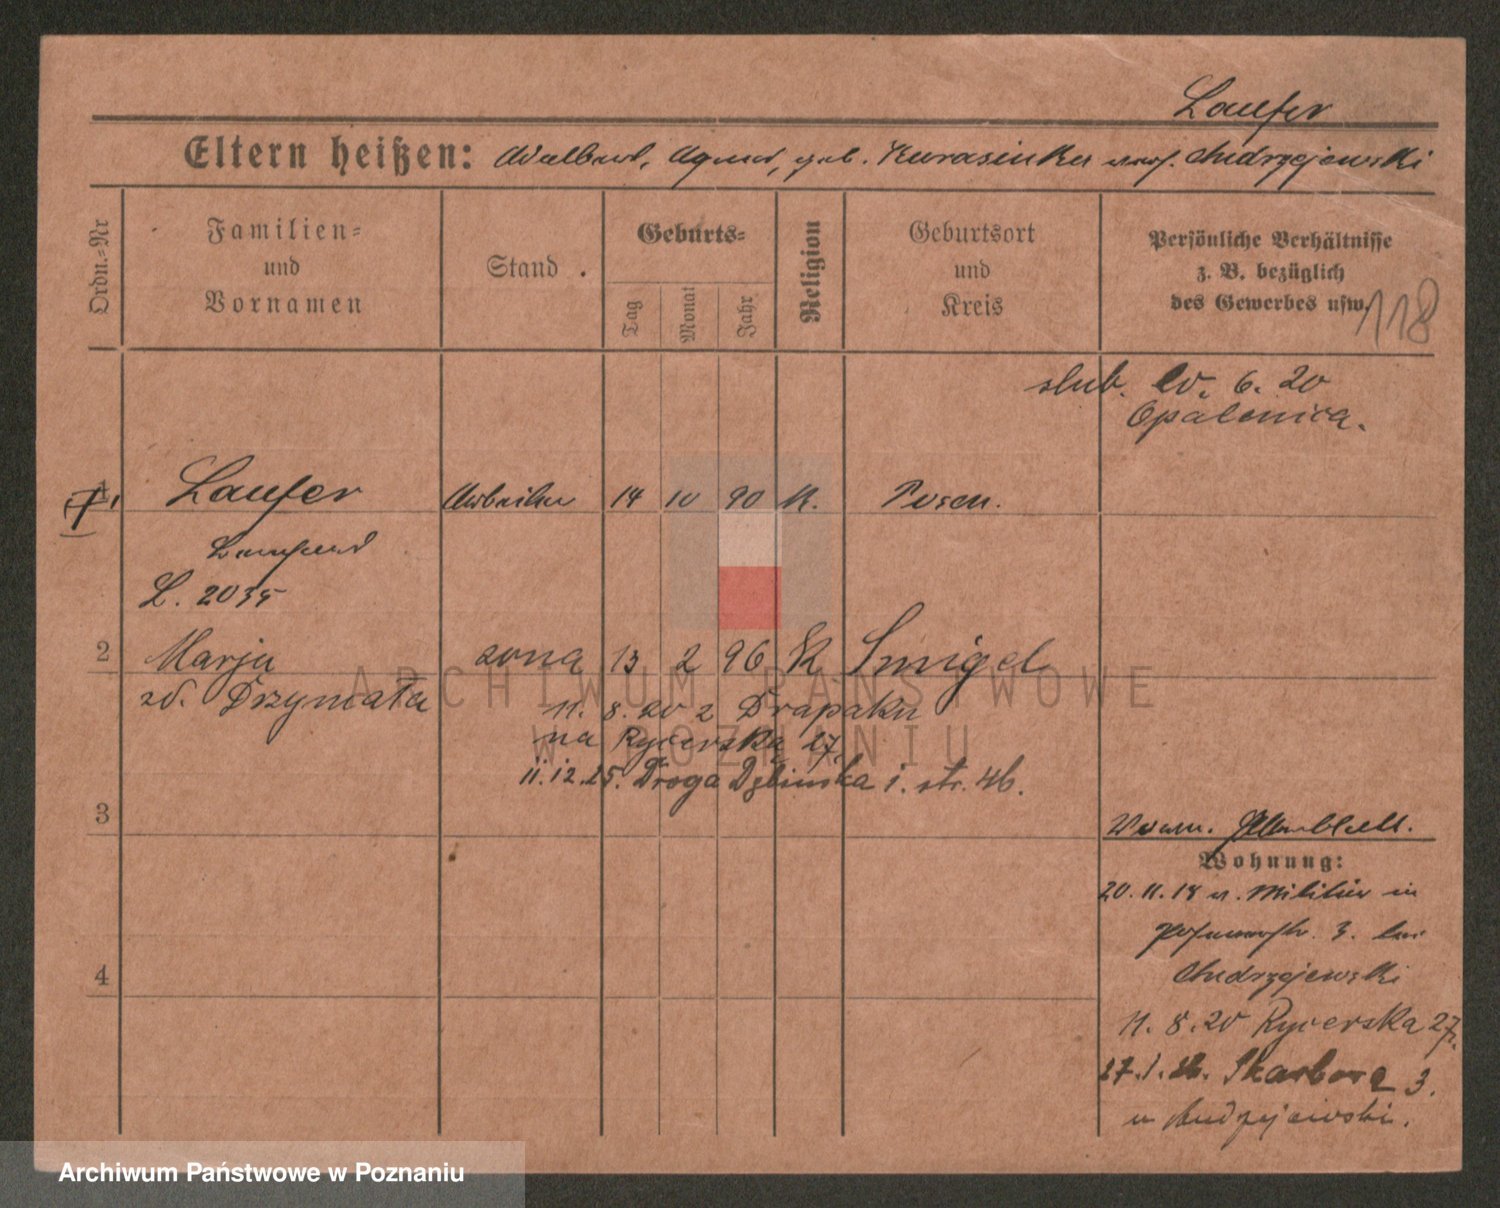 Laufer
Eltern heißen: Adalbert, Agnes, geb. Kurasinska verw. Andrzejewski
Ordn.-Nr
Familien-
und
Vornamen
Stand
Geburts-
Tag
Monat
Jahr
Religion
Geburtsort
und
Kreis
Persönliche Verhältnisse
z. B. bezüglich
des Gewerbes usw.
118
slub. 20. 6. 20
Opalenica.
1 Laufer Arbeiter 14 10 90 K. Posen.
L. 2035
2 Marja żona 13 2 96 K Smigel
zd. Drzymała
11. 8. 20 z Drapaku
na Rycerska 27.
11.12.25. Droga Dębinska i. str. 4b.
3
Wohnung:
20. 11. 18 v. Militär in
3. bei
Andrzejewski
4
11. 8. 20 Rycerska 27.
27. 1. 26. Skarbowa 3.
u Andrzejewski.
ARCHIWUM PAŃSTWOWE
W POZNANIU
Archiwum Państwowe w Poznaniu